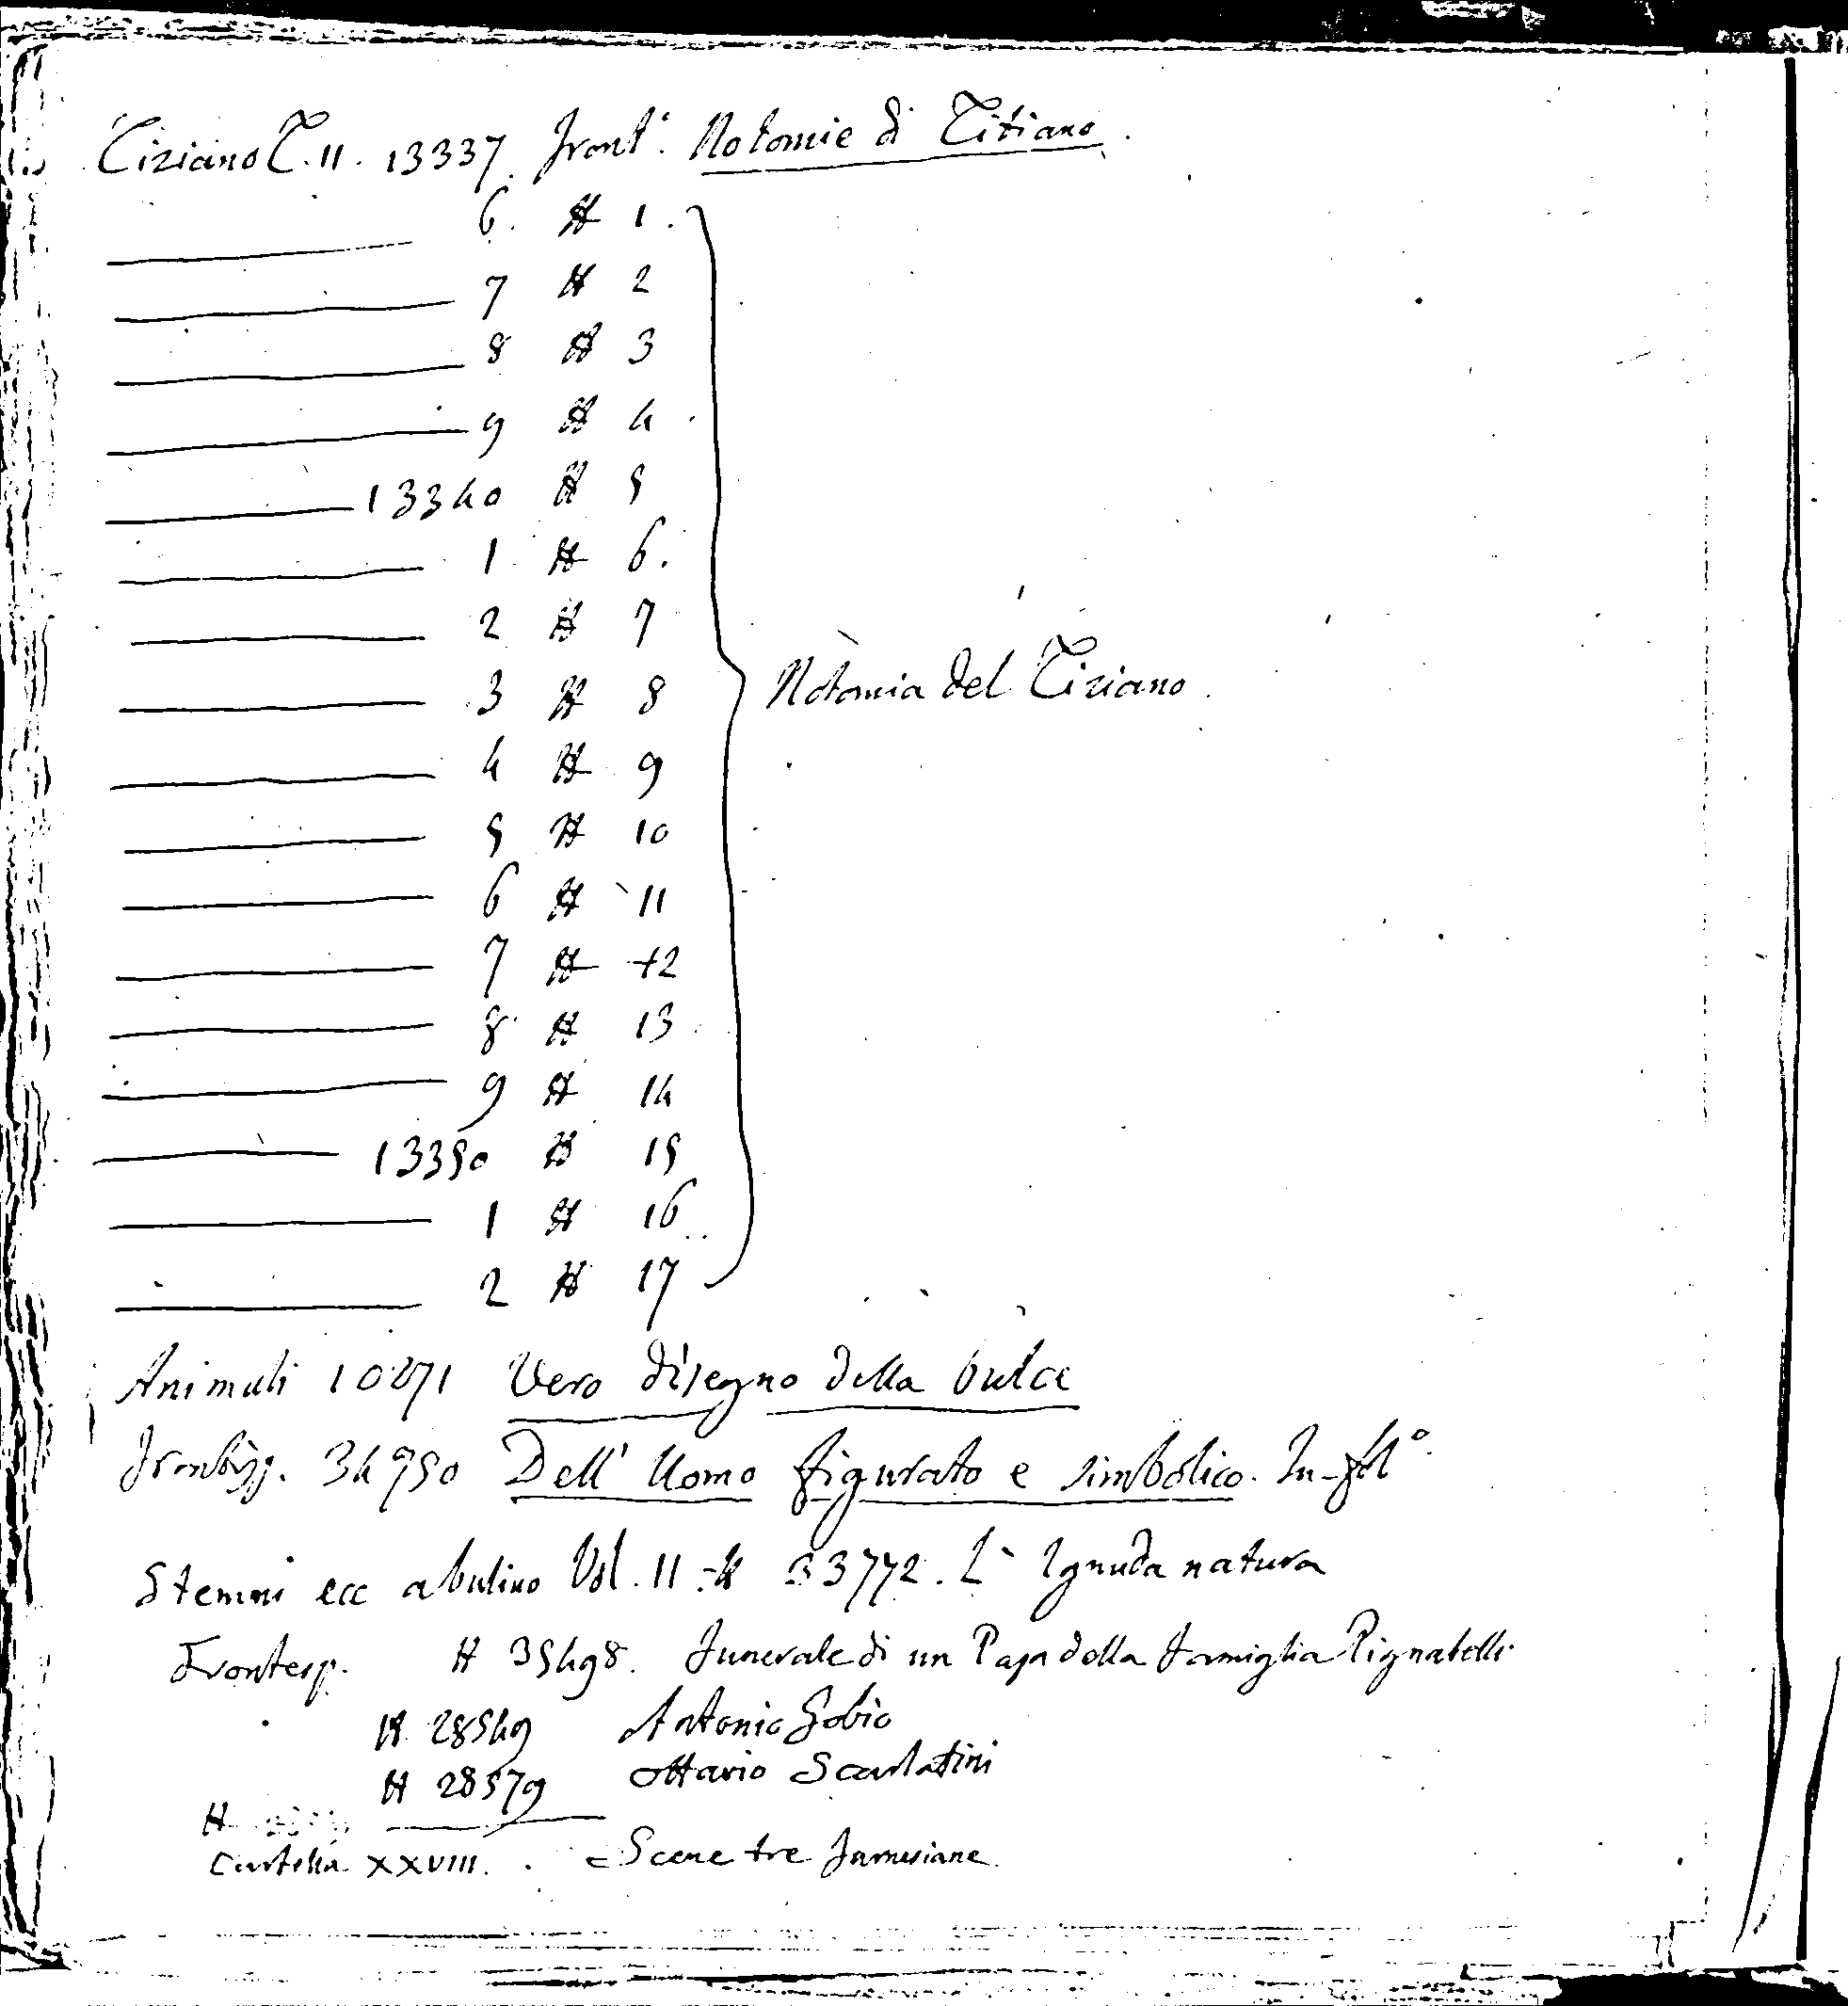 Tiziano T. 11. 13337. Front.º Notomie di Titiano.
6. # 1.
7 # 2
8 # 3
9 # 4
13340 # 5
1 # 6.
2 # 7
3 # 8
Notomia del Tiziano.
4 # 9
5 # 10
6 # 11
7 # 12
8 # 13
9 # 14
13350 # 15
1 # 16
2 # 17
Animali 10271 Vero disegno della Pulce
34950 Dell' Uomo figurato e simbolico. In-folº
Stemmi ecc a bulino Vol. II - # 33772. L' Ignuda natura
Frontesp. # 35498. Funerale di un Papa della Famiglia Pignatelli
# 28549 Antonio Gobio
# 28579 Ottavio Scarlatini
#
Cartella XXVIII. = Scene tre Farnesiane.